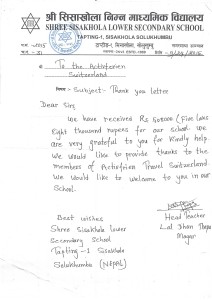 श्री सिसाखोला निम्न माध्यमिक विद्यालय
SHREE SISAKHOLA LOWER SECONDARY SCHOOL
TAPTING-1, SISAKHOLA SOLUKHUMBU
To the Actiofarien
Switzerland
Subject- Thank you letter
Dear Sir,
We have received Rs 508000 (Five lakes
eight thousand rupees for our school. we
are very grateful to you for kindly help.
We would like to provide thanks to the
members of Actiofarien Travel Switzerland.
We would like to welcome to you in our
School.
Best wishes
Shree Sisakhola lower
Secondary School
Tapting -1 Sisakhola
Solukhumbu (NEPAL)
Head Teacher
Magar